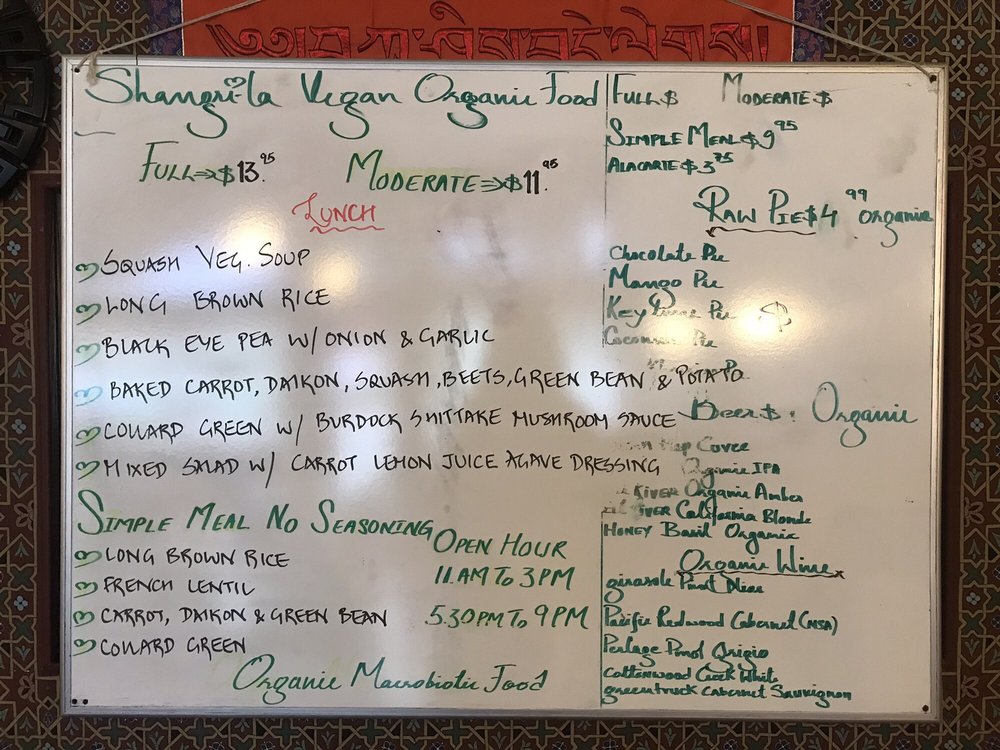 Shangrila Vegan Organic Food
FULL⇒$13.95 MODERATE⇒$11.95
LUNCH
SQUASH VEG. SOUP
LONG BROWN RICE
BLACK EYE PEA W/ ONION & GARLIC
BAKED CARROT, DAIKON, SQUASH, BEETS, GREEN BEAN & POTATO
COLLARD GREEN W/ BURDOCK SHITTAKE MUSHROOM SAUCE
MIXED SALAD W/ CARROT LEMON JUICE AGAVE DRESSING
SIMPLE MEAL NO SEASONING
LONG BROWN RICE
FRENCH LENTIL
CARROT, DAIKON & GREEN BEAN
COLLARD GREEN
OPEN HOUR
11.AM TO 3PM
5.30PM TO 9PM
Organic Macrobiotic Food
FULL $ MODERATE $
SIMPLE MEAL $9.95
ALACARTE $3.75
RAW PIE $4.99 organic
Chocolate Pie
Mango Pie
Key Pie $
Coconut Pie
Beer $: Organic
Organic IPA
River Organic Amber
California Blonde
HONEY Basil Organic
Organic Wine
girasole Pinot Noir
Pacific Redwood Cabernet (NSA)
Perlage Pinot Grigio
Cottonwood Creek White
greentruck Cabernet Sauvignon